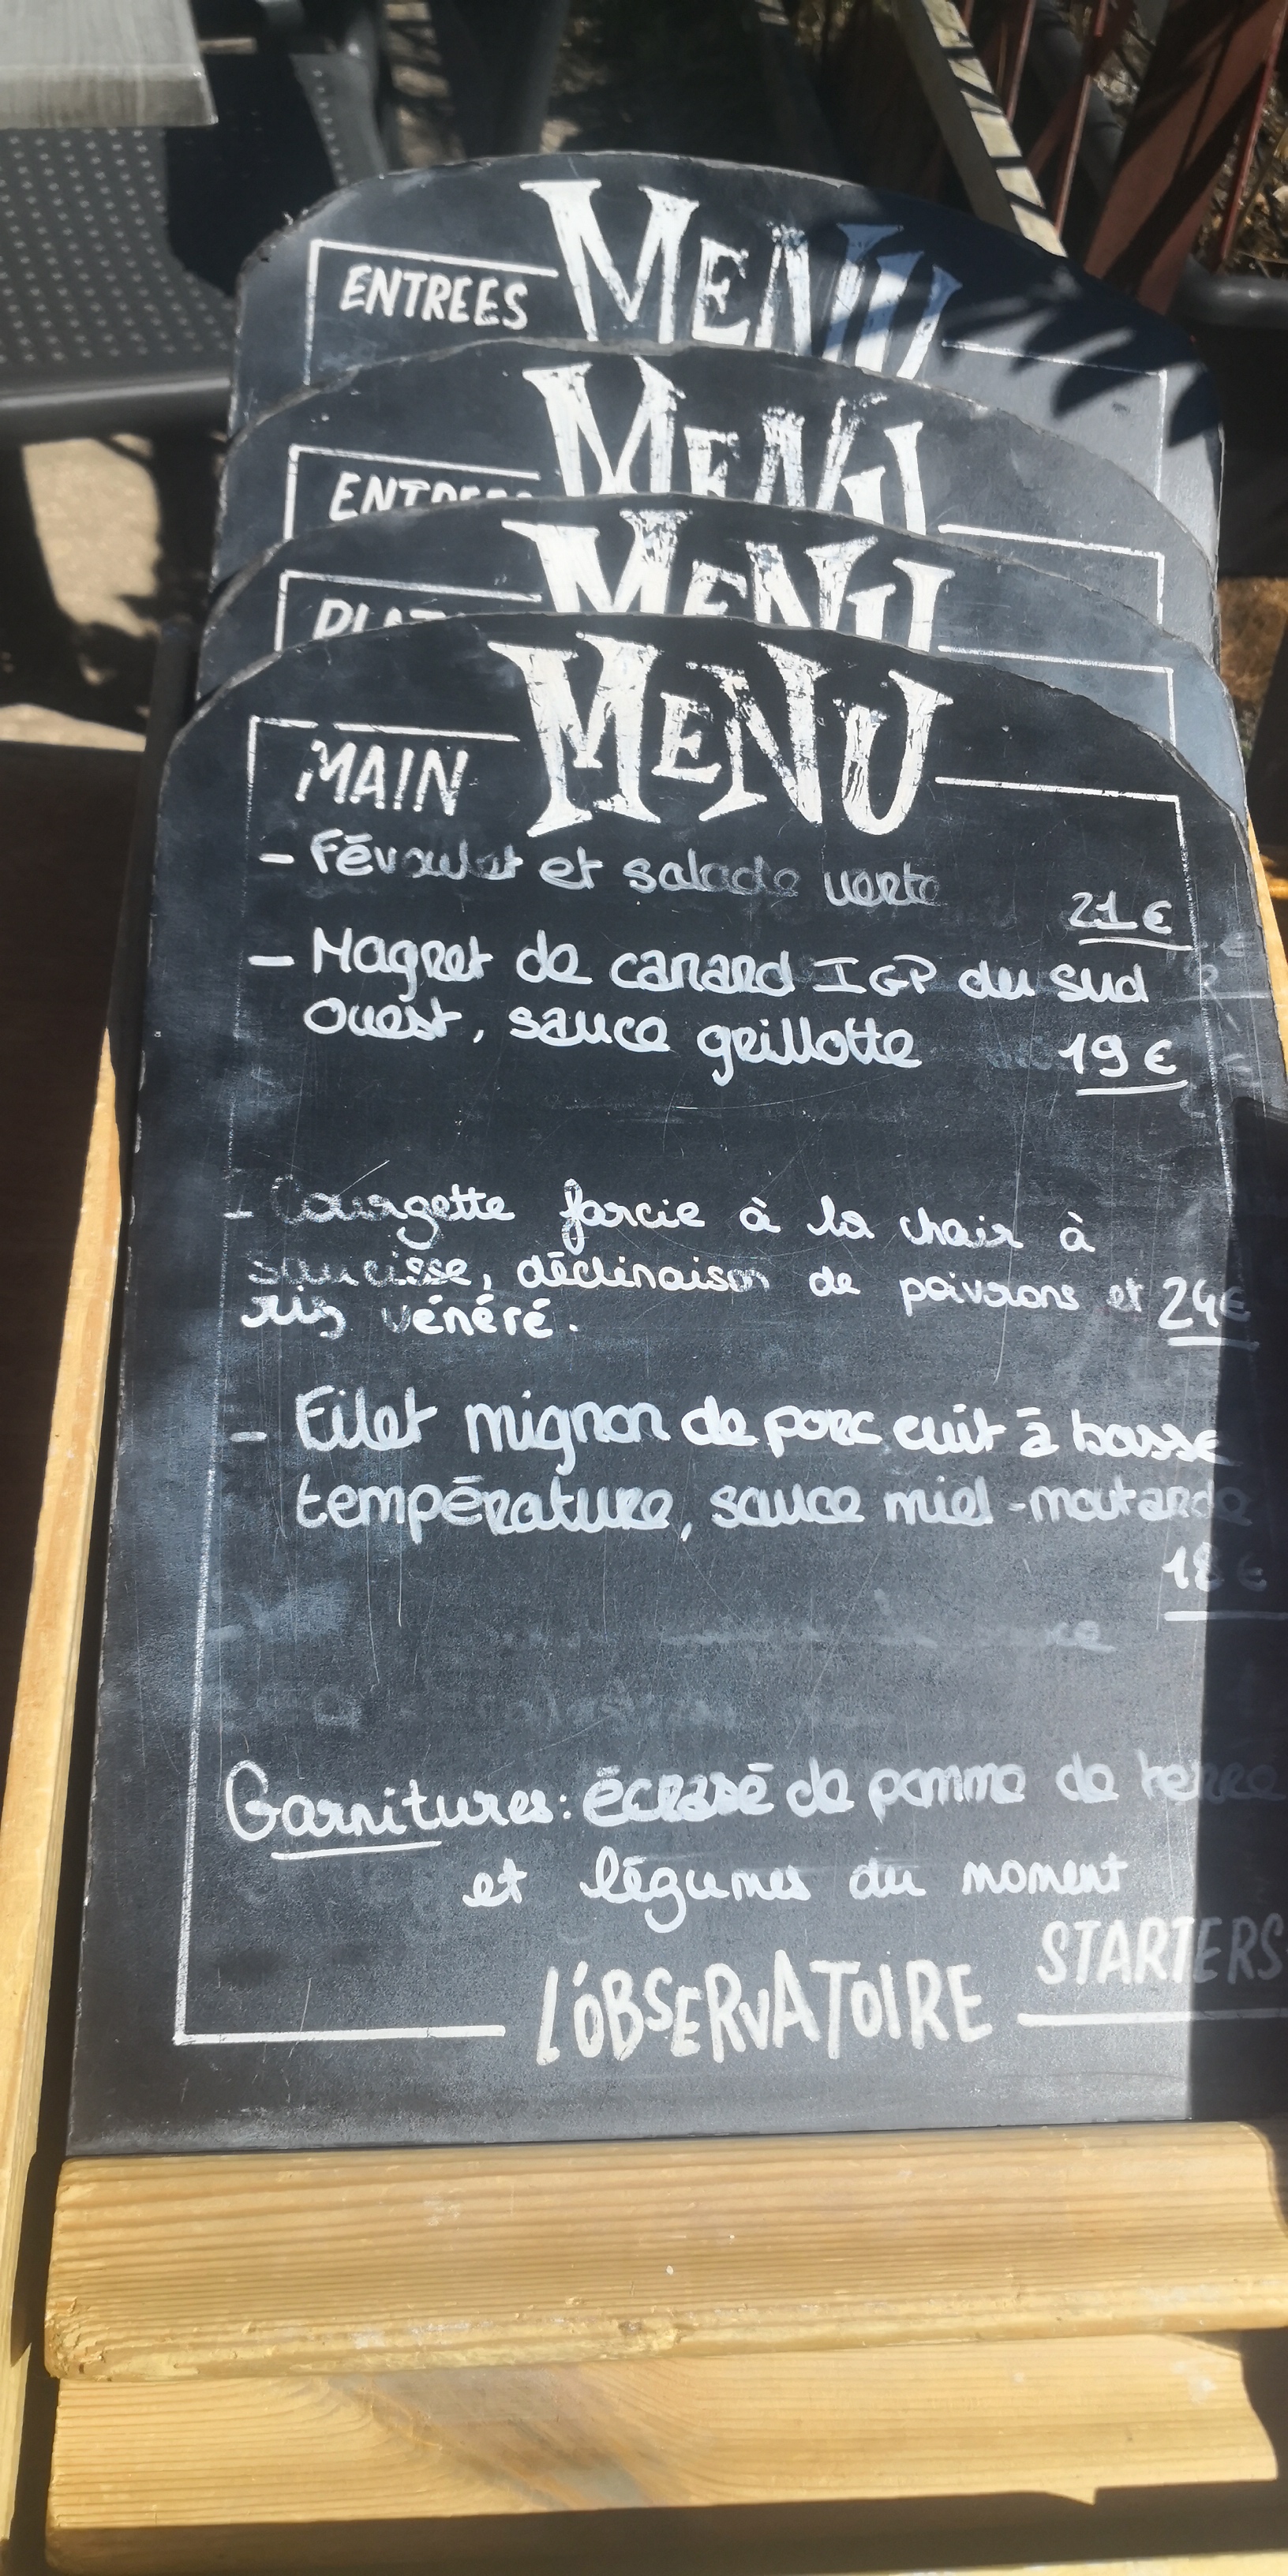 ENTREES MENU
MENU
MENU
MENU
MAIN
- Févoulet et salade verte
21€
- Magret de canard IGP du sud
Ouest, sauce grillotte 19€
- Courgette farcie à la chair à
saucisse, déclinaison de poivrons et 24€
riz vénéré.
- Filet mignon de porc cuit à basse
température, sauce miel-moutarde
18€
Garnitures: écrasé de pomme de terre
et légumes du moment
STARTERS
L'OBSERVATOIRE